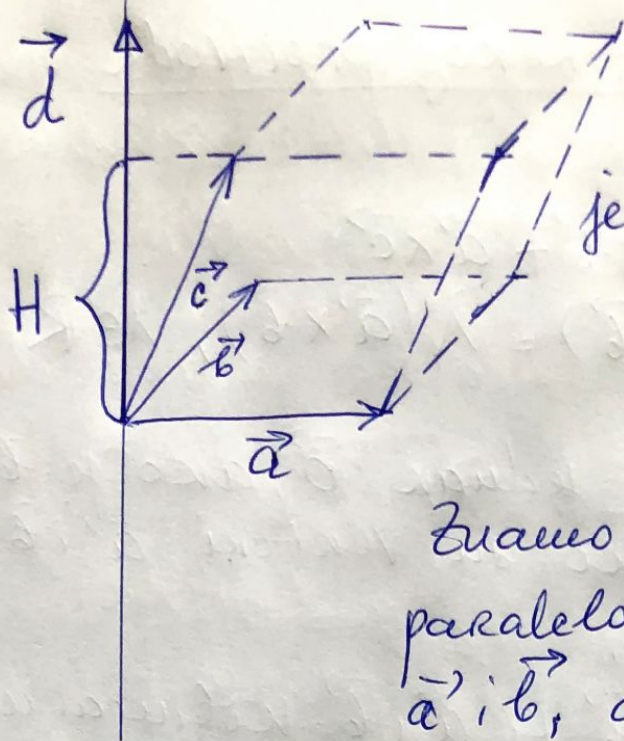 d⃗
je
H
c⃗
b⃗
a⃗
Znamo
paralelo
a⃗ i b⃗,